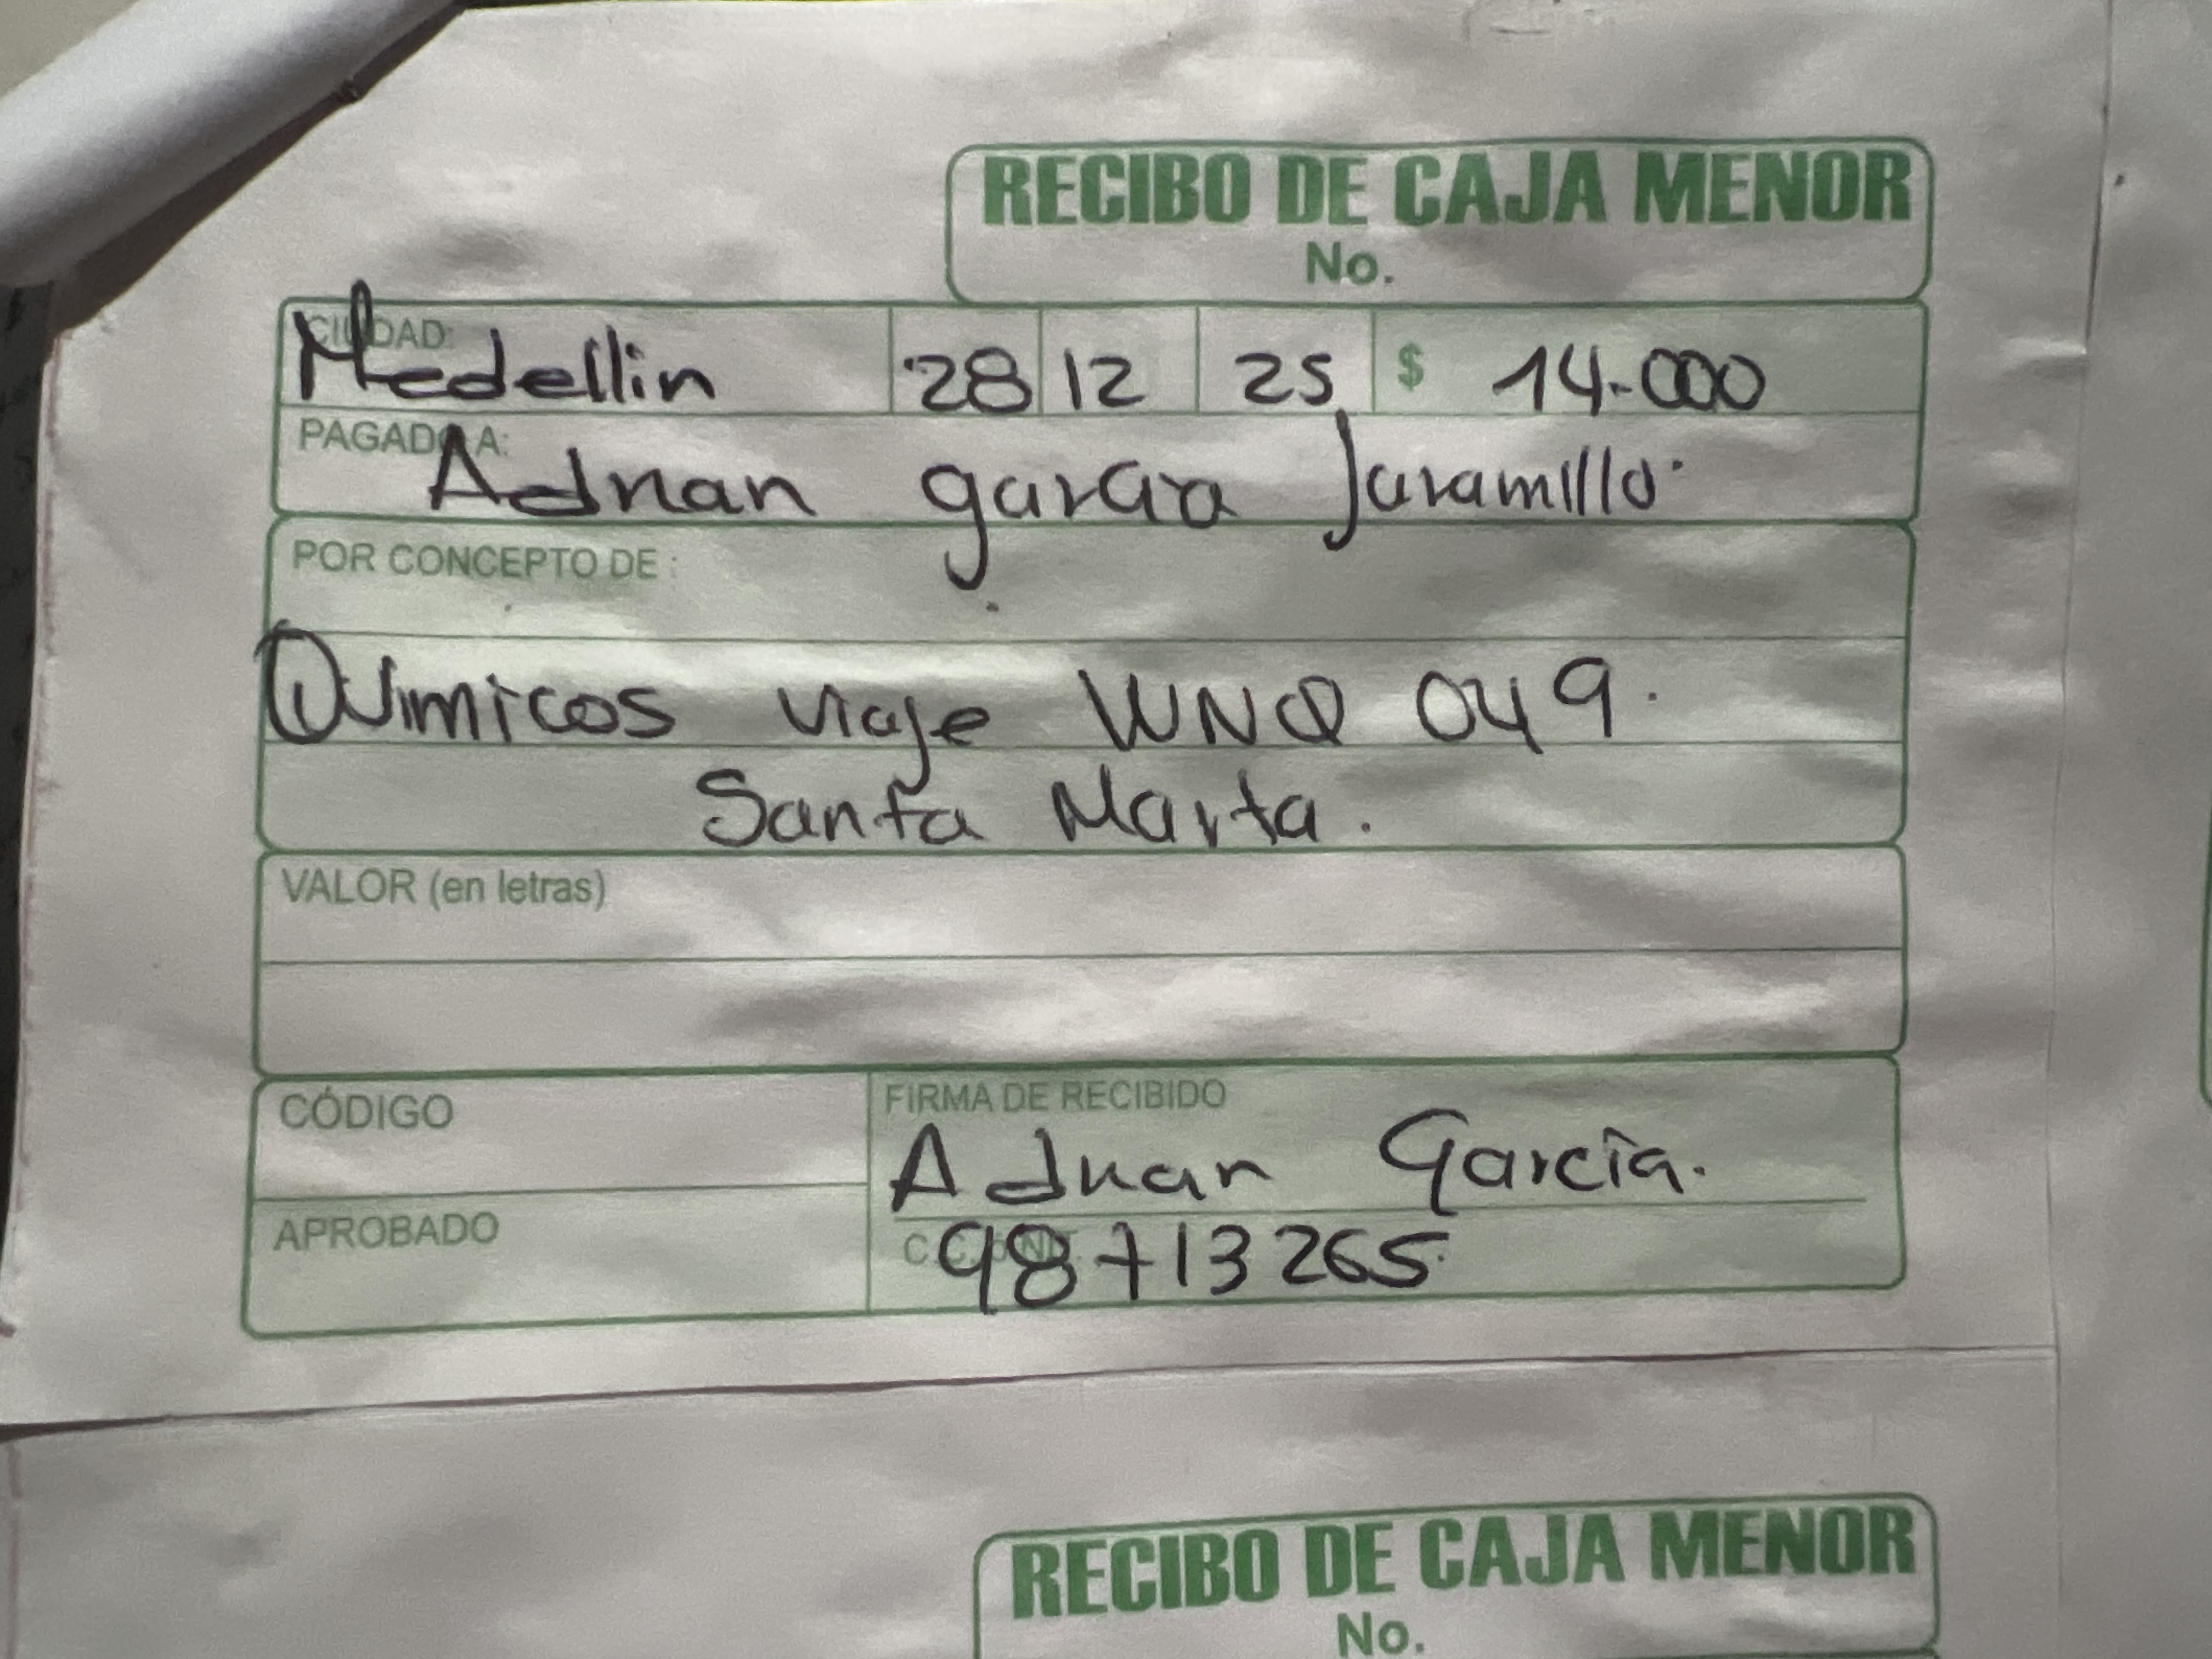 RECIBO DE CAJA MENOR
No.
CIUDAD: Medellin 28 12 25 $ 14.000
PAGADO A: Adrian garcia Jaramillo.
POR CONCEPTO DE :
Quimicos viaje WNQ 049.
Santa Marta.
VALOR (en letras)
CÓDIGO
FIRMA DE RECIBIDO
Adrian García.
APROBADO
C.C. o NIT. 98713265
RECIBO DE CAJA MENOR
No.